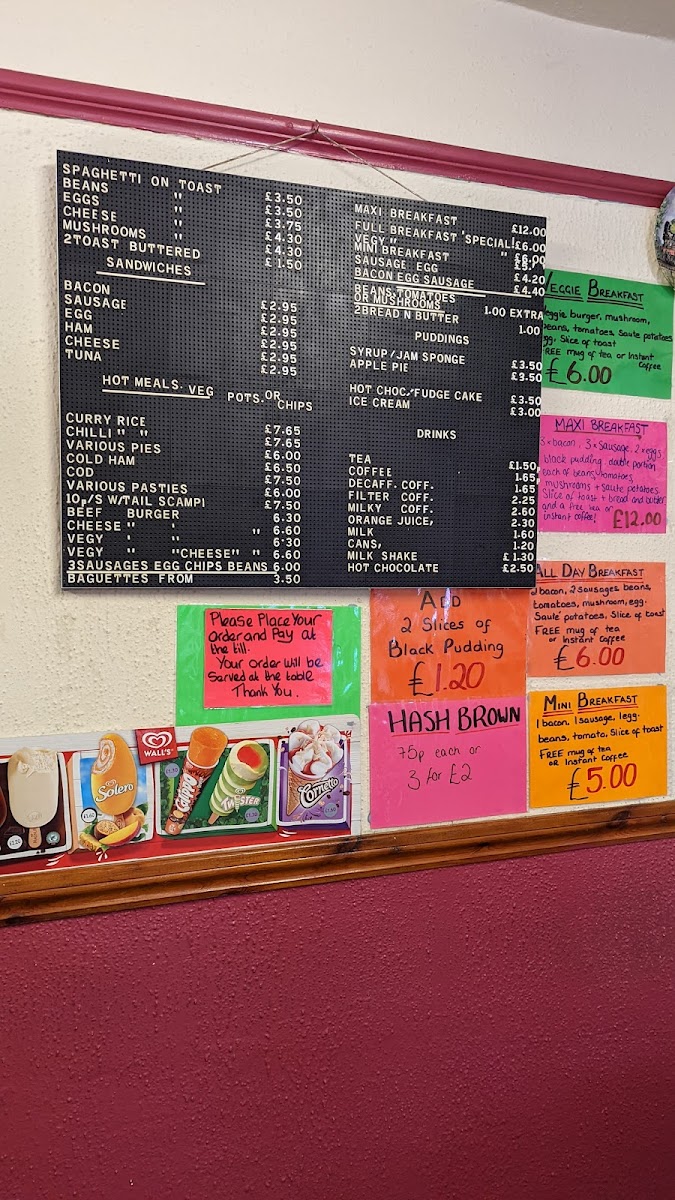 SPAGHETTI ON TOAST £3.50
BEANS " £3.50
EGGS " £3.75
CHEESE " £4.30
MUSHROOMS " £4.30
2TOAST BUTTERED £1.50
SANDWICHES
BACON £2.95
SAUSAGE £2.95
EGG £2.95
HAM £2.95
CHEESE £2.95
TUNA £2.95
HOT MEALS. VEG POTS. OR CHIPS
CURRY RICE £7.65
CHILLI " " £7.65
VARIOUS PIES £6.00
COLD HAM £6.50
COD £7.50
VARIOUS PASTIES £6.00
10P/S W/TAIL SCAMPI £7.50
BEEF BURGER 6.30
CHEESE " ' " 6.60
VEGY ' ' 6.30
VEGY ' "CHEESE" " 6.60
3SAUSAGES EGG CHIPS BEANS 6.00
BAGUETTES FROM 3.50
MAXI BREAKFAST £12.00
FULL BREAKFAST 'SPECIAL! £6.00
VEGY " " £6.00
MINI BREAKFAST
SAUSAGE EGG £4.20
BACON EGG SAUSAGE £4.40
BEANS TOMATOES
OR MUSHROOMS 1.00 EXTRA
2BREAD N BUTTER 1.00
PUDDINGS
SYRUP/JAM SPONGE £3.50
APPLE PIE £3.50
HOT CHOC. FUDGE CAKE £3.50
ICE CREAM £3.00
DRINKS
TEA £1.50
COFFEE 1.65
DECAFF. COFF. 1.65
FILTER COFF. 2.25
MILKY COFF. 2.60
ORANGE JUICE, 2.30
MILK 1.60
CANS, 1.20
MILK SHAKE £1.30
HOT CHOCOLATE £2.50
VEGGIE BREAKFAST
Veggie burger, mushroom,
beans, tomatoes, Saute potatoes
egg, Slice of toast
FREE mug of tea or Instant
Coffee
£6.00
MAXI BREAKFAST
3 x bacon, 3 x Sausage, 2 x eggs
black pudding, double portion
each of beans, tomatoes,
mushrooms + saute potatoes,
Slice of toast + bread and butter
and a free tea or
instant coffee!
£12.00
ALL DAY BREAKFAST
2 bacon, 2 sausages, beans,
tomatoes, mushroom, egg,
Saute potatoes, Slice of toast
FREE mug of tea
or Instant Coffee
£6.00
MINI BREAKFAST
1 bacon, 1 sausage, 1 egg,
beans, tomato, Slice of toast
FREE mug of tea
OR Instant Coffee
£5.00
ADD
2 Slices of
Black Pudding
£1.20
HASH BROWN
75p each or
3 for £2
Please Place Your
order and Pay at
the till.
Your order will be
Served at the table
Thank You.
WALL'S
Solero
CALIPPO
TWISTER
Cornetto